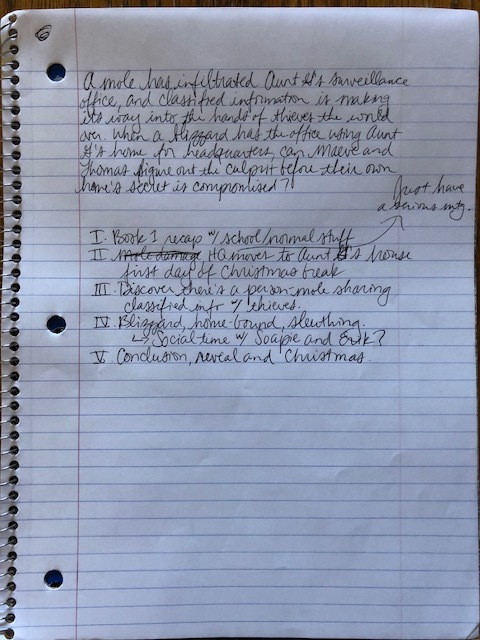 6
A mole has infiltrated Aunt G's surveillance
office, and classified information is making
its way into the hands of thieves the world
over. When a blizzard has the office using Aunt
G's home for headquarters, can Maeve and
Thomas figure out the culprit before their own
home's secret is compromised?
Just have
a serious mtg.
I. Book 1 recap w/ school/normal stuff
II. Mole damage HQ moves to Aunt G's house
first day of Christmas break
III. Discover there's a person-mole sharing
classified info w/ thieves.
IV. Blizzard, home-bound, sleuthing.
↳ Social time w/ Soapie and Erik?
V. Conclusion, reveal and Christmas.